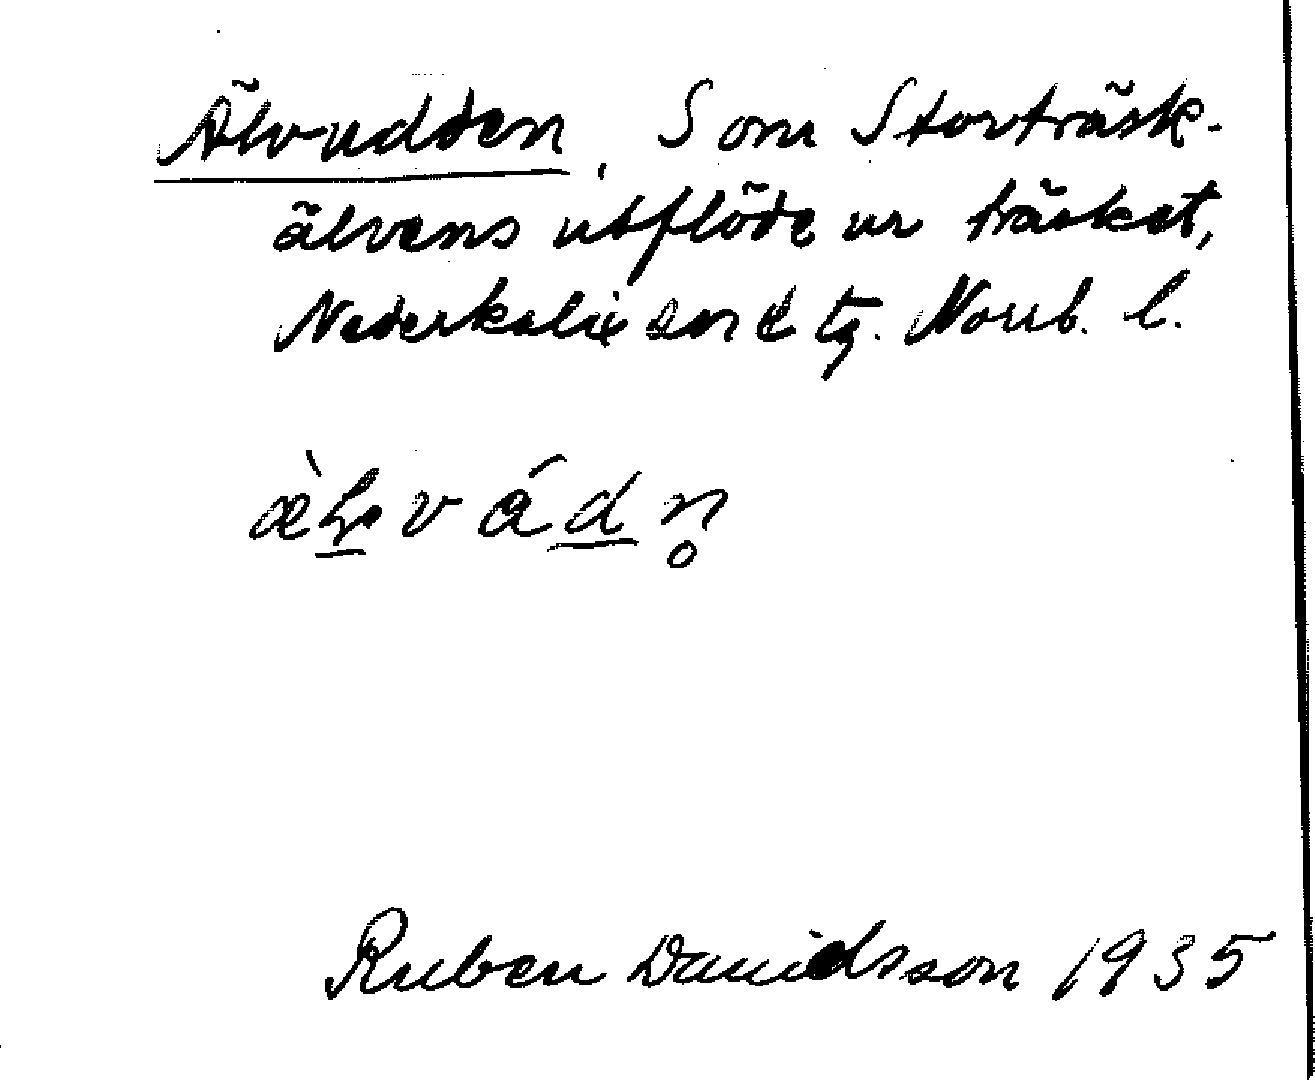 Älvudden, Som Storträsk-
älvens utflöde ur träsket,
Nederkalix sn o tg. Norrb. l.
Ruben Davidsson 1935